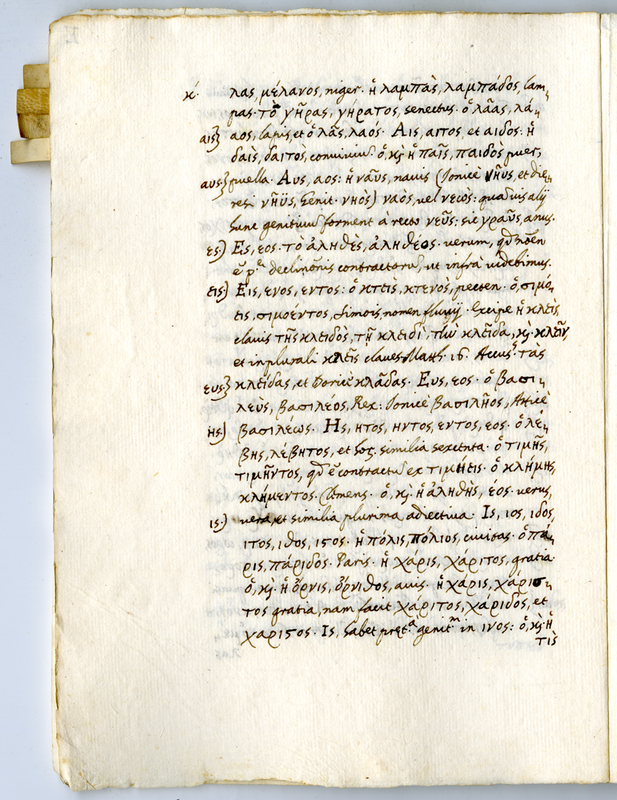 κ. λας, μέλανος, niger. ἡ λαμπὰς, λαμπάδος, lam,
pas. τὸ γῆρας, γήρατος, senectus. ὁ λᾶας, λά,
αις} αος, lapis, et ὁ λᾶς, λαός. Αις, αιτος et αιδος: ἡ
δαὶς, δαιτὸς, conviviũ. ὁ, κỳ ἡ παῖς, παιδὸς puer,
αυς} puella. Αυς, αος: ἡ ναῦς, navis (Ionicè νῆυς, et dię,
resi νηῢς, Genit. νηὸς) ναὸς, vel νεὼς: quãvis alij
hunc genitivũ forment à recto νεῦς: sic γραῦς, anus.
ες.) Ες, εος. τὸ ἀληθὲς, ἀληθέος. verum, qđ
declinõnis contractorũ, ut infrà videbimus.
εις) Εις, ενος, εντος: ὁ κτεὶς, κτενὸς, pecten. ὁ, σιμό,
εις, σιμοέντος, Simois, nomen fluvij. Excipe ἡ κλεὶς,
clavis τῆς κλειδὸς, τῇ κλειδὶ, τὴν κλεῖδα, κỳ κλεῖν,
et in plurali κλεῖς claves Matth. 16. Accus. τὰς
ευς} κλείδας, et Doricè κλᾶδας. Ευς, εος. ὁ βασι,
λεὺς, βασιλέος, Rex: Ionicè βασιλῆος, Atticè
ης.) βασιλέως. Ης, ητος, ηντος, εντος, εος. ὁ λέ,
βης, λέβητος, et hoc similia sexcenta. ὁ τιμῆς,
τιμῆντος, qđ ẽ contractũ ex τιμήεις. ὁ κλήμης,
κλήμεντος. Clemens. ὁ, κỳ ἡ ἀληθὴς, έος. verus,
ις.) vera, et similia plurima adiectiva. Ις, ιος, ιδος,
ιτος, ιθος, ιϛος. ἡ πόλις, πόλιος, civitas. ὁ πά,
ρις, πάριδος. Paris. ἡ χάρις, χάριτος, gratia.
ὁ, κỳ ἡ ὄρνις, ὄρνιθος, avis. ἡ χάρις, χάριϛ,
τος gratia, nam facit χάριτος, χάριδος, et
χαριϛος. Ις, habet genit. in ινος: ὁ, κỳ ἡ
τὶς